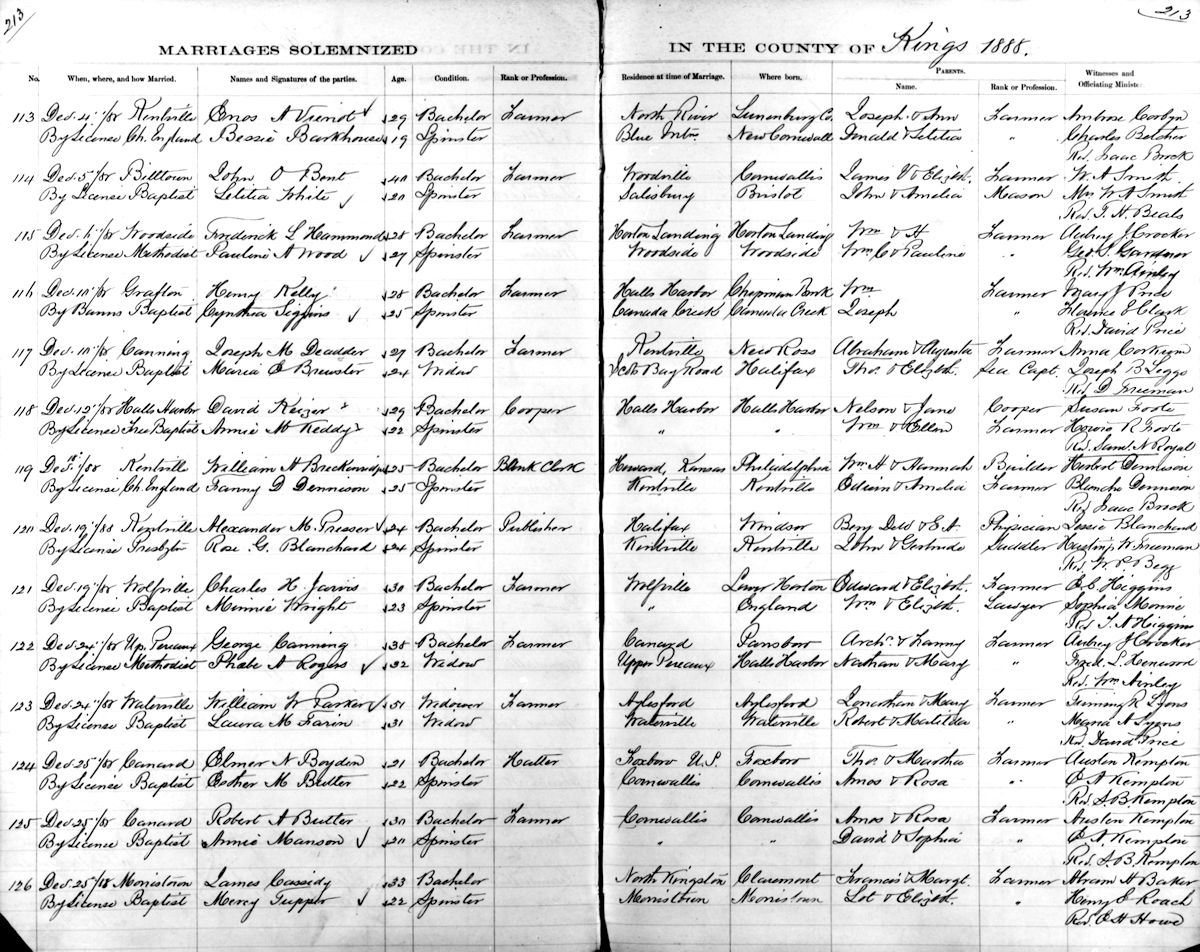 213 213
MARRIAGES SOLEMNIZED IN THE COUNTY OF Kings 1888.
No. When, where, and how Married. Names and Signatures of the parties. Age. Condition. Rank or Profession. Residence at time of Marriage. Where born. PARENTS. Name. Rank or Profession. Witnesses and Officiating Minister.
113 Dec. 4, /88 Kentville Enos A Vienot 29 Bachelor Farmer North River Lunenburg Co. Joseph & Ann Farmer Ambrose
By License Ch. England Bessie Barkhouse 19 Spinster Blue Mtn. New Cornwall Donald & Letitia " Charles Belcher
Rev. Isaac Brock
114 Dec. 5 /88 Billtown John O Bent 40 Bachelor Farmer Woodville Cornwallis James V & Elizbt. Farmer W. A Smith
By License Baptist Letitia White 20 Spinster Salisbury Bristol John & Amelia Mason Mrs W A Smith
Rev. F. H. Beals
115 Dec. 6, /88 Woodside Frederick L Hammond 28 Bachelor Farmer Horton Landing Horton Landing Wm & H Farmer Aubrey J Crooker
By License Methodist Pauline A Wood 27 Spinster Woodside Woodside Wm C & Pauline " Geo. S. Gardner
Rev. Wm Ainley
116 Dec. 10, /88 Grafton Henry Kelly 28 Bachelor Farmer Halls Harbor Chipman Brook Wm Farmer Mary J Price
By Banns Baptist Cynthia 25 Spinster Canada Creek Canada Creek Joseph " Florence E Clark
Rev. David Price
117 Dec. 10, /88 Canning Joseph M Deadder 27 Bachelor Farmer Kentville New Ross Abraham & Augusta Farmer Anna Corkum
By License Baptist Maria E Brewster 24 Widow Scots Bay Road Halifax Thos. & Elizbt. Sea Capt. Joseph B
Rev. D. Freeman
118 Dec. 12, /88 Halls Harbor David Keizer 29 Bachelor Cooper Halls Harbor Halls Harbor Nelson & Jane Cooper Susan Foote
By License Free Baptist Annie M Reddy 22 Spinster " " Wm & Ellen Farmer R Foote
Rev. Saml. N Royal
119 Dec. 18, /88 Kentville William H Breckenridge 25 Bachelor Bank Clerk Howard, Kansas Philadelphia Wm H & Hannah Builder Herbert Dennison
By License Ch. England Fanny D Dennison 25 Spinster Kentville Kentville Edwin & Amelia Farmer Blanche Dennison
Rev. Isaac Brock
120 Dec. 19, /88 Kentville Alexander M. 24 Bachelor Publisher Halifax Windsor Benj & E. A. Physician Jessie Blanchard
By License Presbytn Rose G. Blanchard 24 Spinster Kentville Kentville John & Gertrude Saddler Hastings W Freeman
Rev. W P Begg
121 Dec. 19, /88 Wolfville Charles H. Jarvis 30 Bachelor Farmer Wolfville Lower Horton Edward & Elizbt. Farmer Higgins
By License Baptist Minnie Wright 23 Spinster " England Wm & Elizbt. Lawyer Sophia
Rev. T. A Higgins
122 Dec. 24, /88 Up. Pereaux George Canning 38 Bachelor Farmer Canard Parsboro Archd. & Fanny Farmer Aubrey J Crooker
By License Methodist Phebe A Rogers 32 Widow Upper Pereaux Halls Harbor Nathan & Mary " Fred. L.
Rev. Wm Ainley
123 Dec. 24, /88 Waterville William W Parker 51 Widower Farmer Aylesford Aylesford Jonathan & Mary Farmer R Lyons
By License Baptist Laura M 31 Widow Waterville Waterville Robert & Matilda " Maria A Lyons
Rev. David Price
124 Dec. 25 /88 Canard Elmer N Boyden 21 Bachelor Hatter Foxboro U.S. Foxboro Thos. & Martha Farmer Austen Kempton
By License Baptist Esther M Butler 22 Spinster Cornwallis Cornwallis Amos & Rosa " E A Kempton
Rev. S. B. Kempton
125 Dec. 25, /88 Canard Robert A Butler 30 Bachelor Farmer Cornwallis Cornwallis Amos & Rosa Farmer Austen Kempton
By License Baptist Annie Manson 20 Spinster " " David & Sophia " E A. Kempton
Rev. S. B. Kempton
126 Dec. 25 /88 Morristown James Cassidy 33 Bachelor North Kingston Claremont Francis & Margt. Farmer Abram H Baker
By License Baptist Mercy Tupper 22 Spinster Morristown Morristown Lot & Elizbt. Henry E Roach
Rev. E H Howe